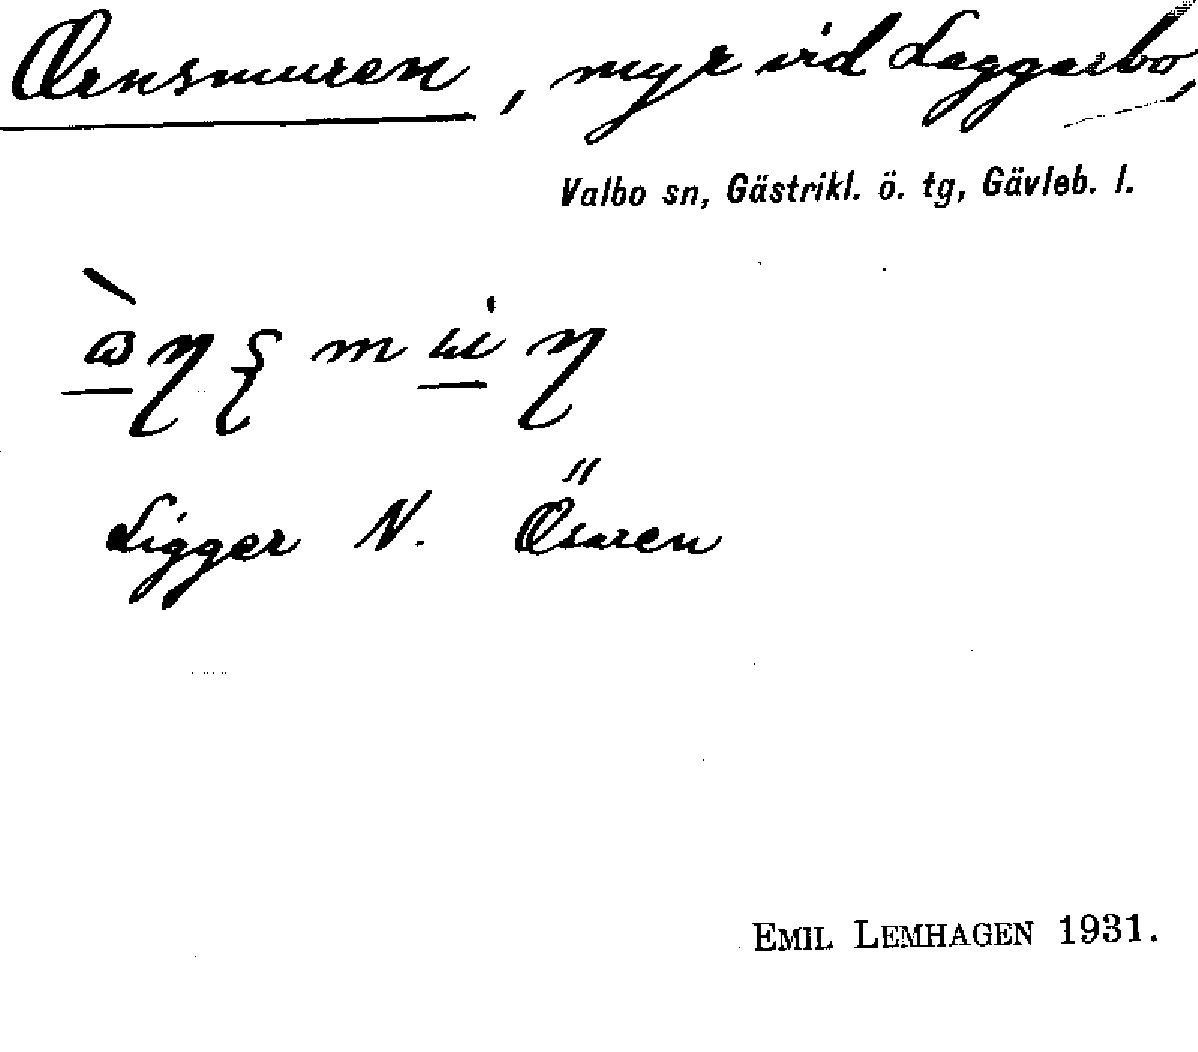 Ornsmuren, myr vid Laggarbo,
Valbo sn, Gästrikl. ö. tg, Gävleb. l.
Ligger N. Ösaren
EMIL LEMHAGEN 1931.